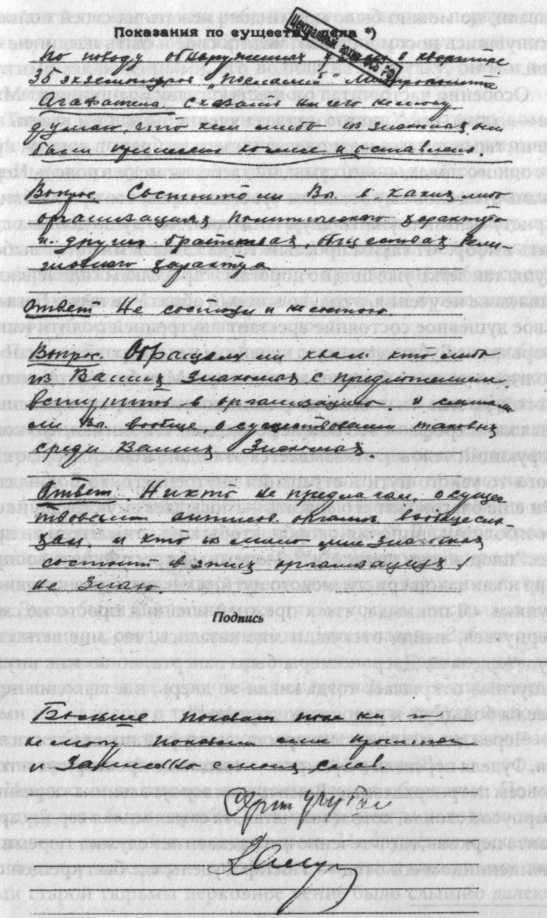 Показания по существу дела *)
По поводу обнаруженных у меня в квартире
35 экземпляров послания Митрополита
Агафангела сказать ничего не могу
думаю, что кем либо из знакомых они
были принесены ко мне и оставлены.
Вопрос. Состоите ли Вы в каких либо
организациях политического характера
и других братствах, обществах рели
гиозного характера
Ответ Не состоял и не состою.
Вопрос. Обращался ли к вам кто либо
из Ваших знакомых с предложением
вступить в организацию и слышали
ли Вы вообще о существовании таковых
среди Ваших знакомых.
Ответ. Никто не предлагал, о сущес
твовании антисов. организ. вообще слы
шал, и кто из моих знакомых
состоит в этих организациях,
не знаю.
Подпись
Больше показать пока ни чего
не могу показания мне прочитаны
и записано с моих слов